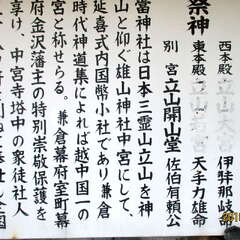 祭神
西本殿 立山大宮 伊弉那岐命
東本殿 立山若宮 天手力雄命
別宮 立山開山堂 佐伯有頼公
當神社は日本三霊山立山を神
山と仰ぐ雄山神社中宮にして、
延喜式内国幣小社であり鎌倉
時代神道集によれば越中国一の
宮と称せらる。鎌倉幕府室町幕
府金沢藩主の特別崇敬保護を
享け、中宮寺塔中の衆徒社人